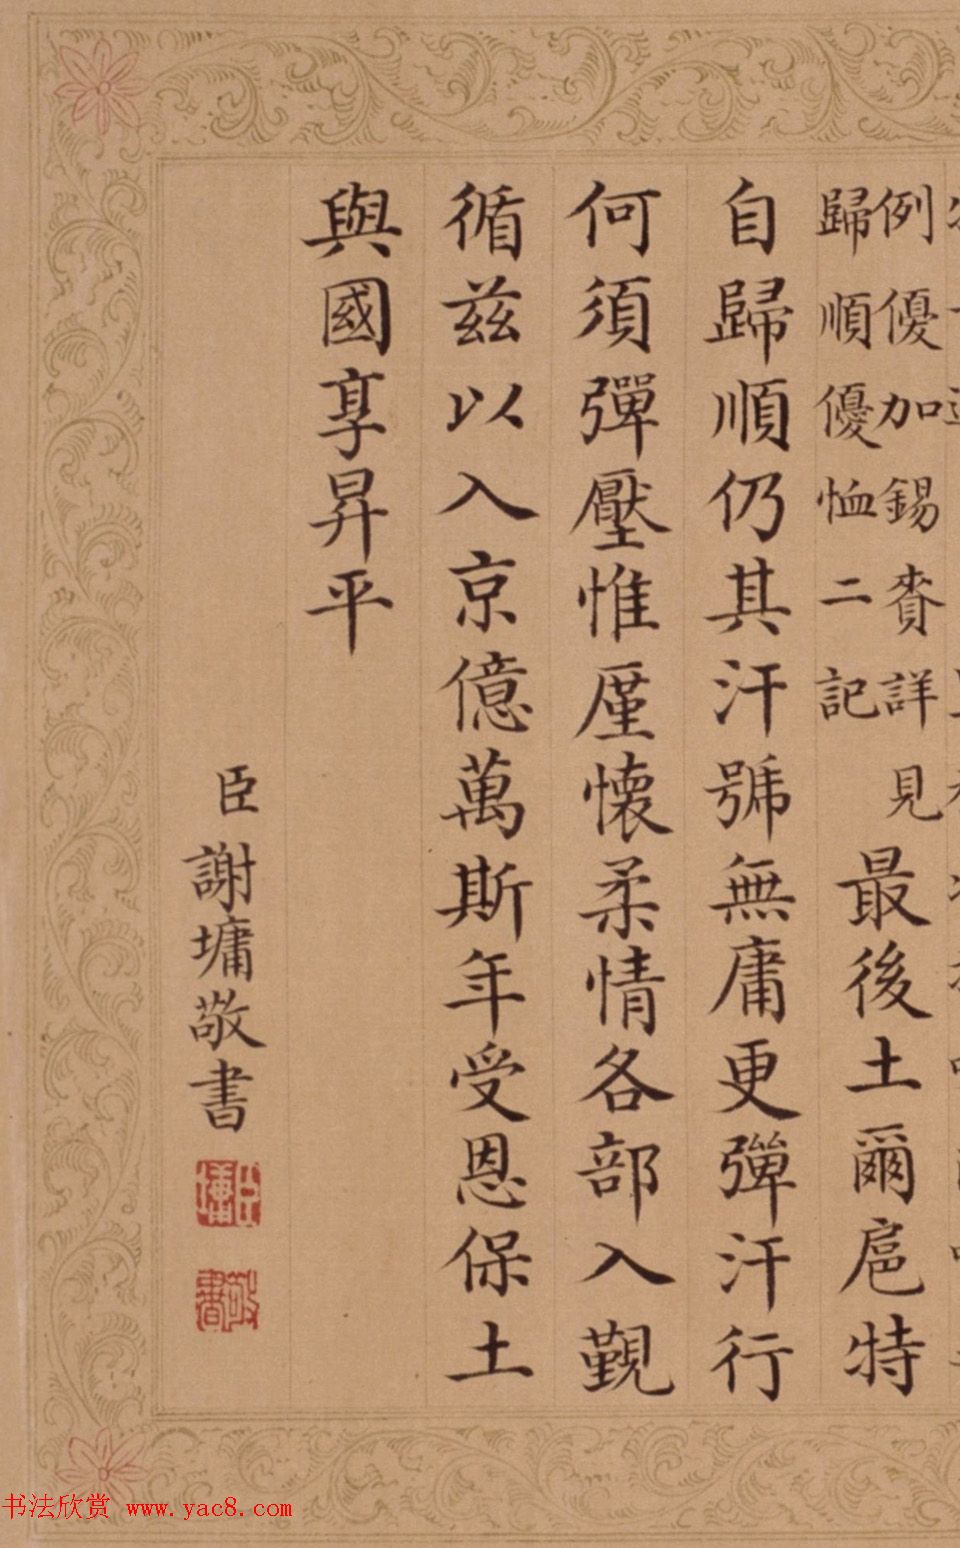 例優加錫賚詳見
歸順優恤二記
最後土爾扈特
自歸順仍其汗號無庸更彈汗行
何須彈壓惟厪懷柔情各部入覲
循茲以入京億萬斯年受恩保土
與國享昇平
臣謝墉敬書
臣墉
敬書
书法欣赏 www.yac8.com